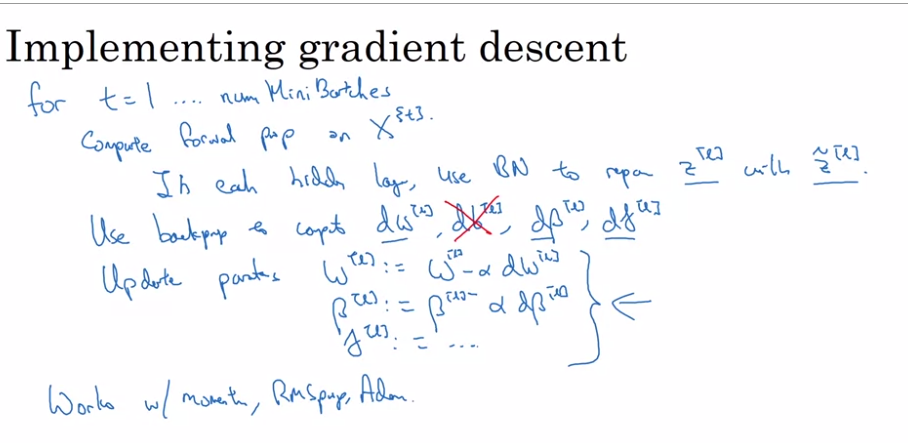 Implementing gradient descent
for t = 1 .... num Mini Batches
Compute forward prop on X^{t}.
In each hidden layer, use BN to repace z^[l] with z̃^[l].
Use backprop to compute dw^[l], db^[l], dβ^[l], dγ^[l]
Update parameters W^[l] := W^[l] - α dW^[l]
β^[l] := β^[l] - α dβ^[l]
γ^[l] := ....
Works w/ momentum, RMSprop, Adam.